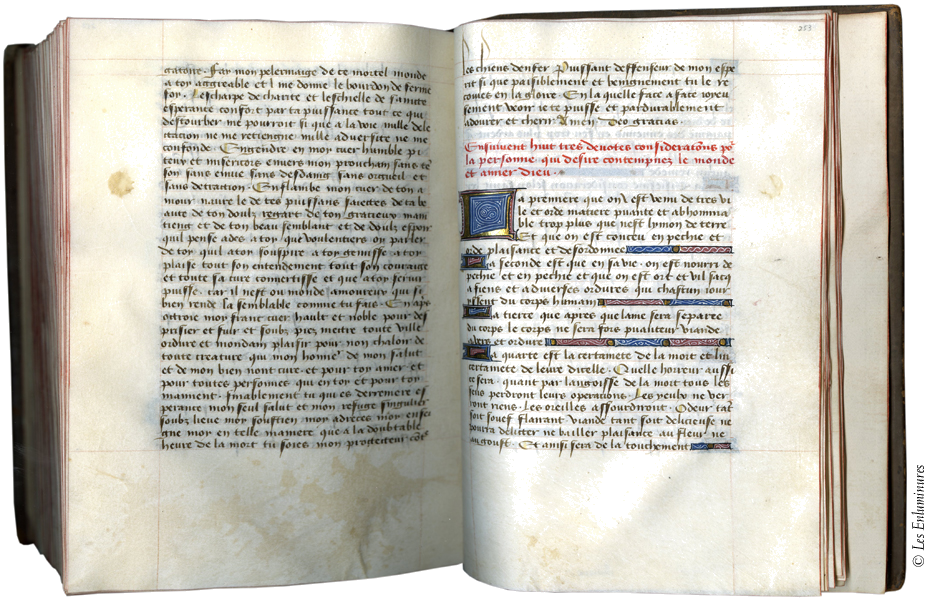 gatoire. Fay mon pelermaige de ce mortel monde
a toy aggreable et me donne le bourdon de ferme
foy. Lescharpe de charite et leschielle de saincte
esperance confort par ta puissance tout ce qui
destourber me pourroit si que a la voie nulle dele
ctacion ne me retiengne nulle adversite ne me
confonde. Engendre en moy cuer humble pi
teux et misericors envers mon prouchain sans
son sans envie sans desdaing sans orgueil et
sans detraction. Enflambe mon cuer de ton a
mour navre le de tes puissans saiectes de ta be
aute de ton doulz regart de ton gracieux main
tieng et de ton beau semblant et de doulz espoir
quil pense adez a toy que voulentiers on parler
de toy quil a toy souspire a toy gemisse a toy
plaise tout son entendement tout son couraige
et toute sa cure convertisse et que a toy servir
puisse. car il nest ou monde amoureux qui si
bien rende la semblable comme tu fais.
mon franc cuer hault et noble pour des
prisier et fuir et soubz piez mettre toute ville
ordure et mondain plaisir pour non chaloir de
toute creature qui mon honneur de mon salut
et de mon bien nont cure. et pour toy amer et
pour toutes personnes qui en toy et pour toy
mament. finablement tu qui es derreniere es
perance mon seul salut et mon refuge singulier
soubz lieve moy soustien moy adreces moy ensei
gne moy en telle maniere que a la doubtable
heure de la mort tu soies mon protecteur
253
les chiens denfer. Puissant deffenseur de mon espe
rit si que paisiblement et benignement tu le re
coives en ta gloire. En la quelle face a face ioieu
sement veoir ie te puisse et pardurablement
adourer et cherir. Amen. Deo gracias.
Ensuivent huit tres devotes consideracions po
la personne qui desire contempnez le monde
et amer dieu.
La premiere que on est venu de tres vi
le et orde matiere puante et abhomina
ble trop plus que nest lymon de terre
Et que on est conceu en pechie et
orde plaisance et desordonnee
La seconde est que en sa vie. on est nourri de
pechie et en pechie et que on est ort et vil sacq
a fiens et adverses ordures qui chascun iour
yssent du corps humain
La tierce que apres que lame sera separee
du corps le corps ne sera fors puanteur viande
a vers et ordure
La quarte est la certainete de la mort et lin
certainete de leure dicelle. Quelle horreur aussi
ce sera. quant par langoisse de la mort tous les
sens perdront leurs operacions. Les yeulx ne ver
ront riens. Les oreilles assourdiront. Odeur tat
soit souef flairant viande tant soit delicieuse ne
pourra deliter ne bailler plaisance au fleur ne
au goust. Et ainsi sera de la touchement
© Les Enluminures